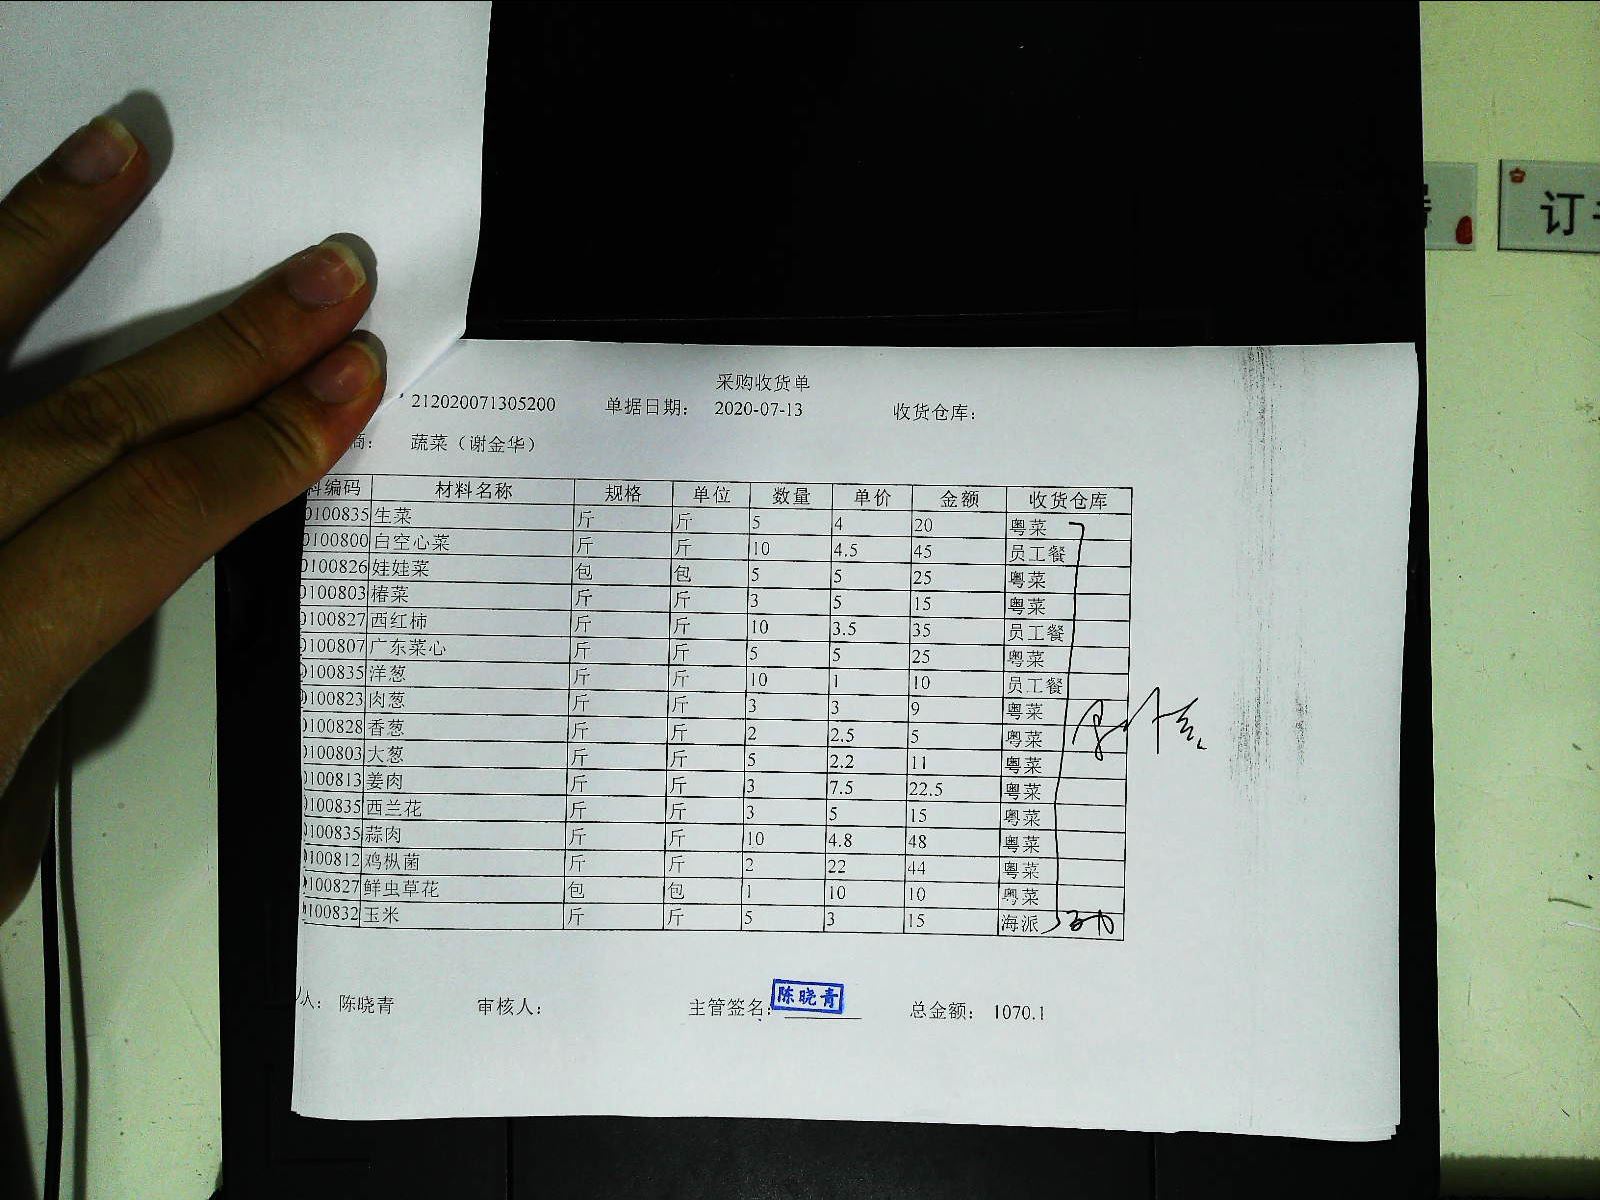 订
采购收货单
212020071305200 单据日期: 2020-07-13 收货仓库:
商: 蔬菜（谢金华）
料编码 材料名称 规格 单位 数量 单价 金额 收货仓库
0100835 生菜 斤 斤 5 4 20 粤菜
0100800 白空心菜 斤 斤 10 4.5 45 员工餐
0100826 娃娃菜 包 包 5 5 25 粤菜
0100803 椿菜 斤 斤 3 5 15 粤菜
0100827 西红柿 斤 斤 10 3.5 35 员工餐
0100807 广东菜心 斤 斤 5 5 25 粤菜
0100835 洋葱 斤 斤 10 1 10 员工餐
0100823 肉葱 斤 斤 3 3 9 粤菜
0100828 香葱 斤 斤 2 2.5 5 粤菜
0100803 大葱 斤 斤 5 2.2 11 粤菜
0100813 姜肉 斤 斤 3 7.5 22.5 粤菜
0100835 西兰花 斤 斤 3 5 15 粤菜
0100835 蒜肉 斤 斤 10 4.8 48 粤菜
0100812 鸡枞菌 斤 斤 2 22 44 粤菜
0100827 鲜虫草花 包 包 1 10 10 粤菜
0100832 玉米 斤 斤 5 3 15 海派
人: 陈晓青 审核人: 主管签名: 陈晓青 总金额: 1070.1